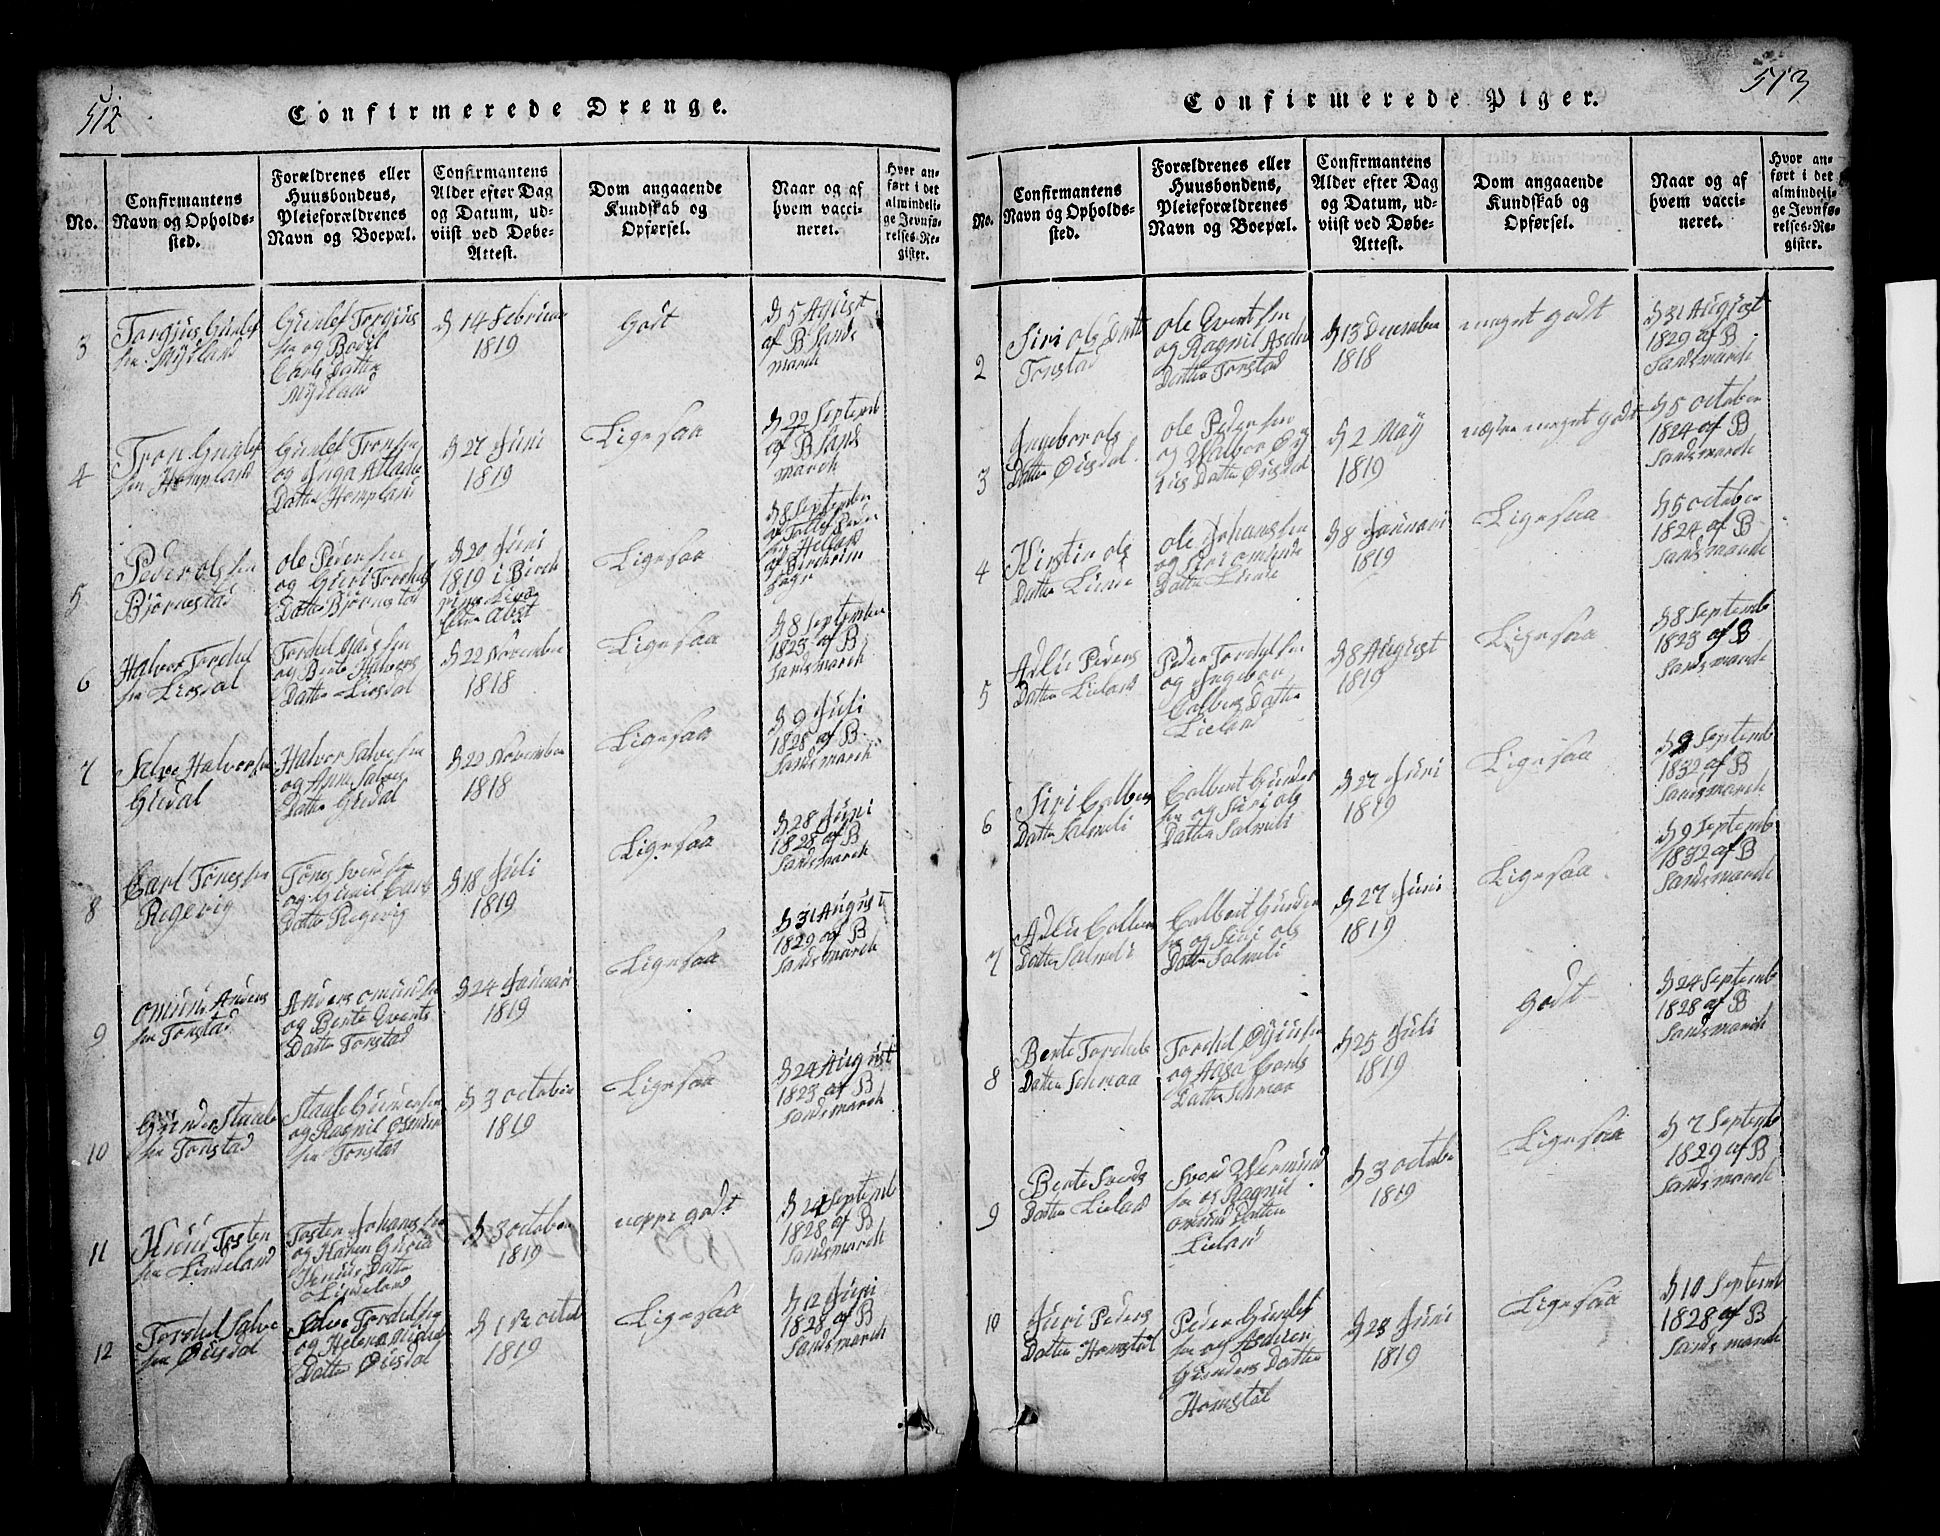 512
Confirmerede Drenge.
No.
Confirmantens
Navn og Opholds-
sted.
Forældrenes eller
Huusbondens,
Pleieforældrenes
Navn og Boepæl.
Confirmantens
Alder efter Dag
og Datum, ud-
viist ved Døbe-
Attest.
Dom angaaende
Kundskab og
Opførsel.
Naar og af
hvem vacci-
neret.
Hvor an-
ført i det
almindeli-
ge Jevnfø-
relses-Re-
gister.
3
Gunlef Torgius
sen og Bodil
Carls Datter
14 Februar
1819
Godt
5 August
af B Sands
marck
4
Tron Gunlef
sen Hompland
Gunlef Tronsen
og Inga Atlaks
Datter Hompland
27 Juni
1819
Ligesaa
22 Septemb
af B Sands
marck
5
Peder olssen
Bjørnestad
ole Pedersen
og Guri Tordels
Datter Bjørnstad
20 Juni
1819 i Birch
Ligesaa
8 September
6
Halvor Tordel
sen Liosdal
og Berte Halvors
Datter Liosdal
22 November
1818
Ligesaa
8 September
1823 af B
Sandsmarck
7
Salve Halvorsen
Gusdal
Halvor Salvesen
og Anne Salves
Datter Gusdal
22 November
1818
Ligesaa
9 Juli
1828 af B
Sandsmarck
8
Carl Tønessen
Regevig
Tønes Svensen
og Gunil Carls
Datter Regevig
18 Juli
1819
Ligesaa
28 Juni
1828 af B
Sandsmarck
9
omund Anders
sen Tonstad
Anders omundsen
og Berte Everts
Datter Tonstad
24 Januari
1819
Ligesaa
31 August
1829 af B
Sandsmarck
10
Gunder Staale
sen Tonstad
Staale Gundersen
og Ragnil
Tonstad
3 october
1819
Ligesaa
24 August
1823 af B
Sandsmarck
11
Tosten
sen Lindeland
Tosten Johanssen
og Karen Guria
Datter
Lindeland
3 october
1819
neppe godt
24 Septemb
1828 af B
Sandsmarck
12
Tordel Salve
sen Øusdal
Salve Tordelsen
og Helena
Datter Øusdal
1819
Ligesaa
12 Juni
1828 af B
Sandsmarck
513
Confirmerede Piger.
No.
Confirmantens
Navn og Opholds-
sted.
Forældrenes eller
Huusbondens,
Pleieforældrenes
Navn og Boepæl.
Confirmantens
Alder efter Dag
og Datum, ud-
viist ved Døbe-
Attest.
Dom angaaende
Kundskab og
Opførsel.
Naar og af
hvem vacci-
neret.
Hvor an-
ført i det
almindeli-
ge Jevnfø-
relses-Re-
gister.
2
Siri ols Datter
Tonstad
ole Evertsen
og Ragnil
Datter Tonstad
13 December
1818
meget godt
31 August
1829 af B
Sandsmarck
3
Ingebor ols
Datter Øusdal
ole Pedersen
og Walbor
Datter Øusdal
2 May
1819
meget godt
5 october
1824 af B
Sandsmarck
4
Kirstin ols
Datter Liinde
ole Johanssen
og Siri omunds
Datter Liinde
8 Januari
1819
Ligesaa
5 october
1824 af B
Sandsmarck
5
Adlu Peders
Datter Lieland
Peder Tordelsen
og Ingebor
Colbens Datter
Lieland
8 August
1819
Ligesaa
8 Septemb
1823 af B
Sandsmarck
6
Siri Colbens
Datter Salmeli
Colbent Gunder
sen og Siri ols
Datter Salmeli
27 Juni
1819
Ligesaa
9 Septemb
1832 af B
Sandsmarck
7
Adlu Colbens
Datter Salmeli
Colbent Gunder
sen og Siri ols
Datter Salmeli
27 Juni
1819
Ligesaa
9 Septemb
1832 af B
Sandsmarck
8
Berte Tordels
Datter Schreaa
Tordel
og Aasa Carls
Datter Schreaa
25 Juli
1819
Godt
24 Septemb
1828 af B
Sandsmarck
9
Berte Svends
Datter Lieland
Svend Wermund
sen og Ragnil
omund Datter
Lieland
3 octobe
1819
Ligesaa
7 Septemb
1829 af B
Sandsmarck
10
Juri Peders
Datter Homstøl
Peder Gunlef
sen og Asdren
Gunders Datter
Homstøl
28 Juni
1819
Ligesaa
10 Septemb
1828 af B
Sandsmarck